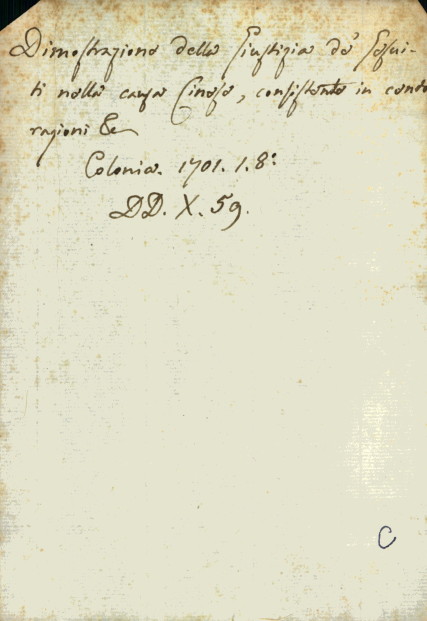 Dimostrazione della Giustizia de' Gesui-
ti nella causa Cinese, consistente in cento
ragioni &c
Colonia. 1701. 1. 8:
DD. X. 59.
C